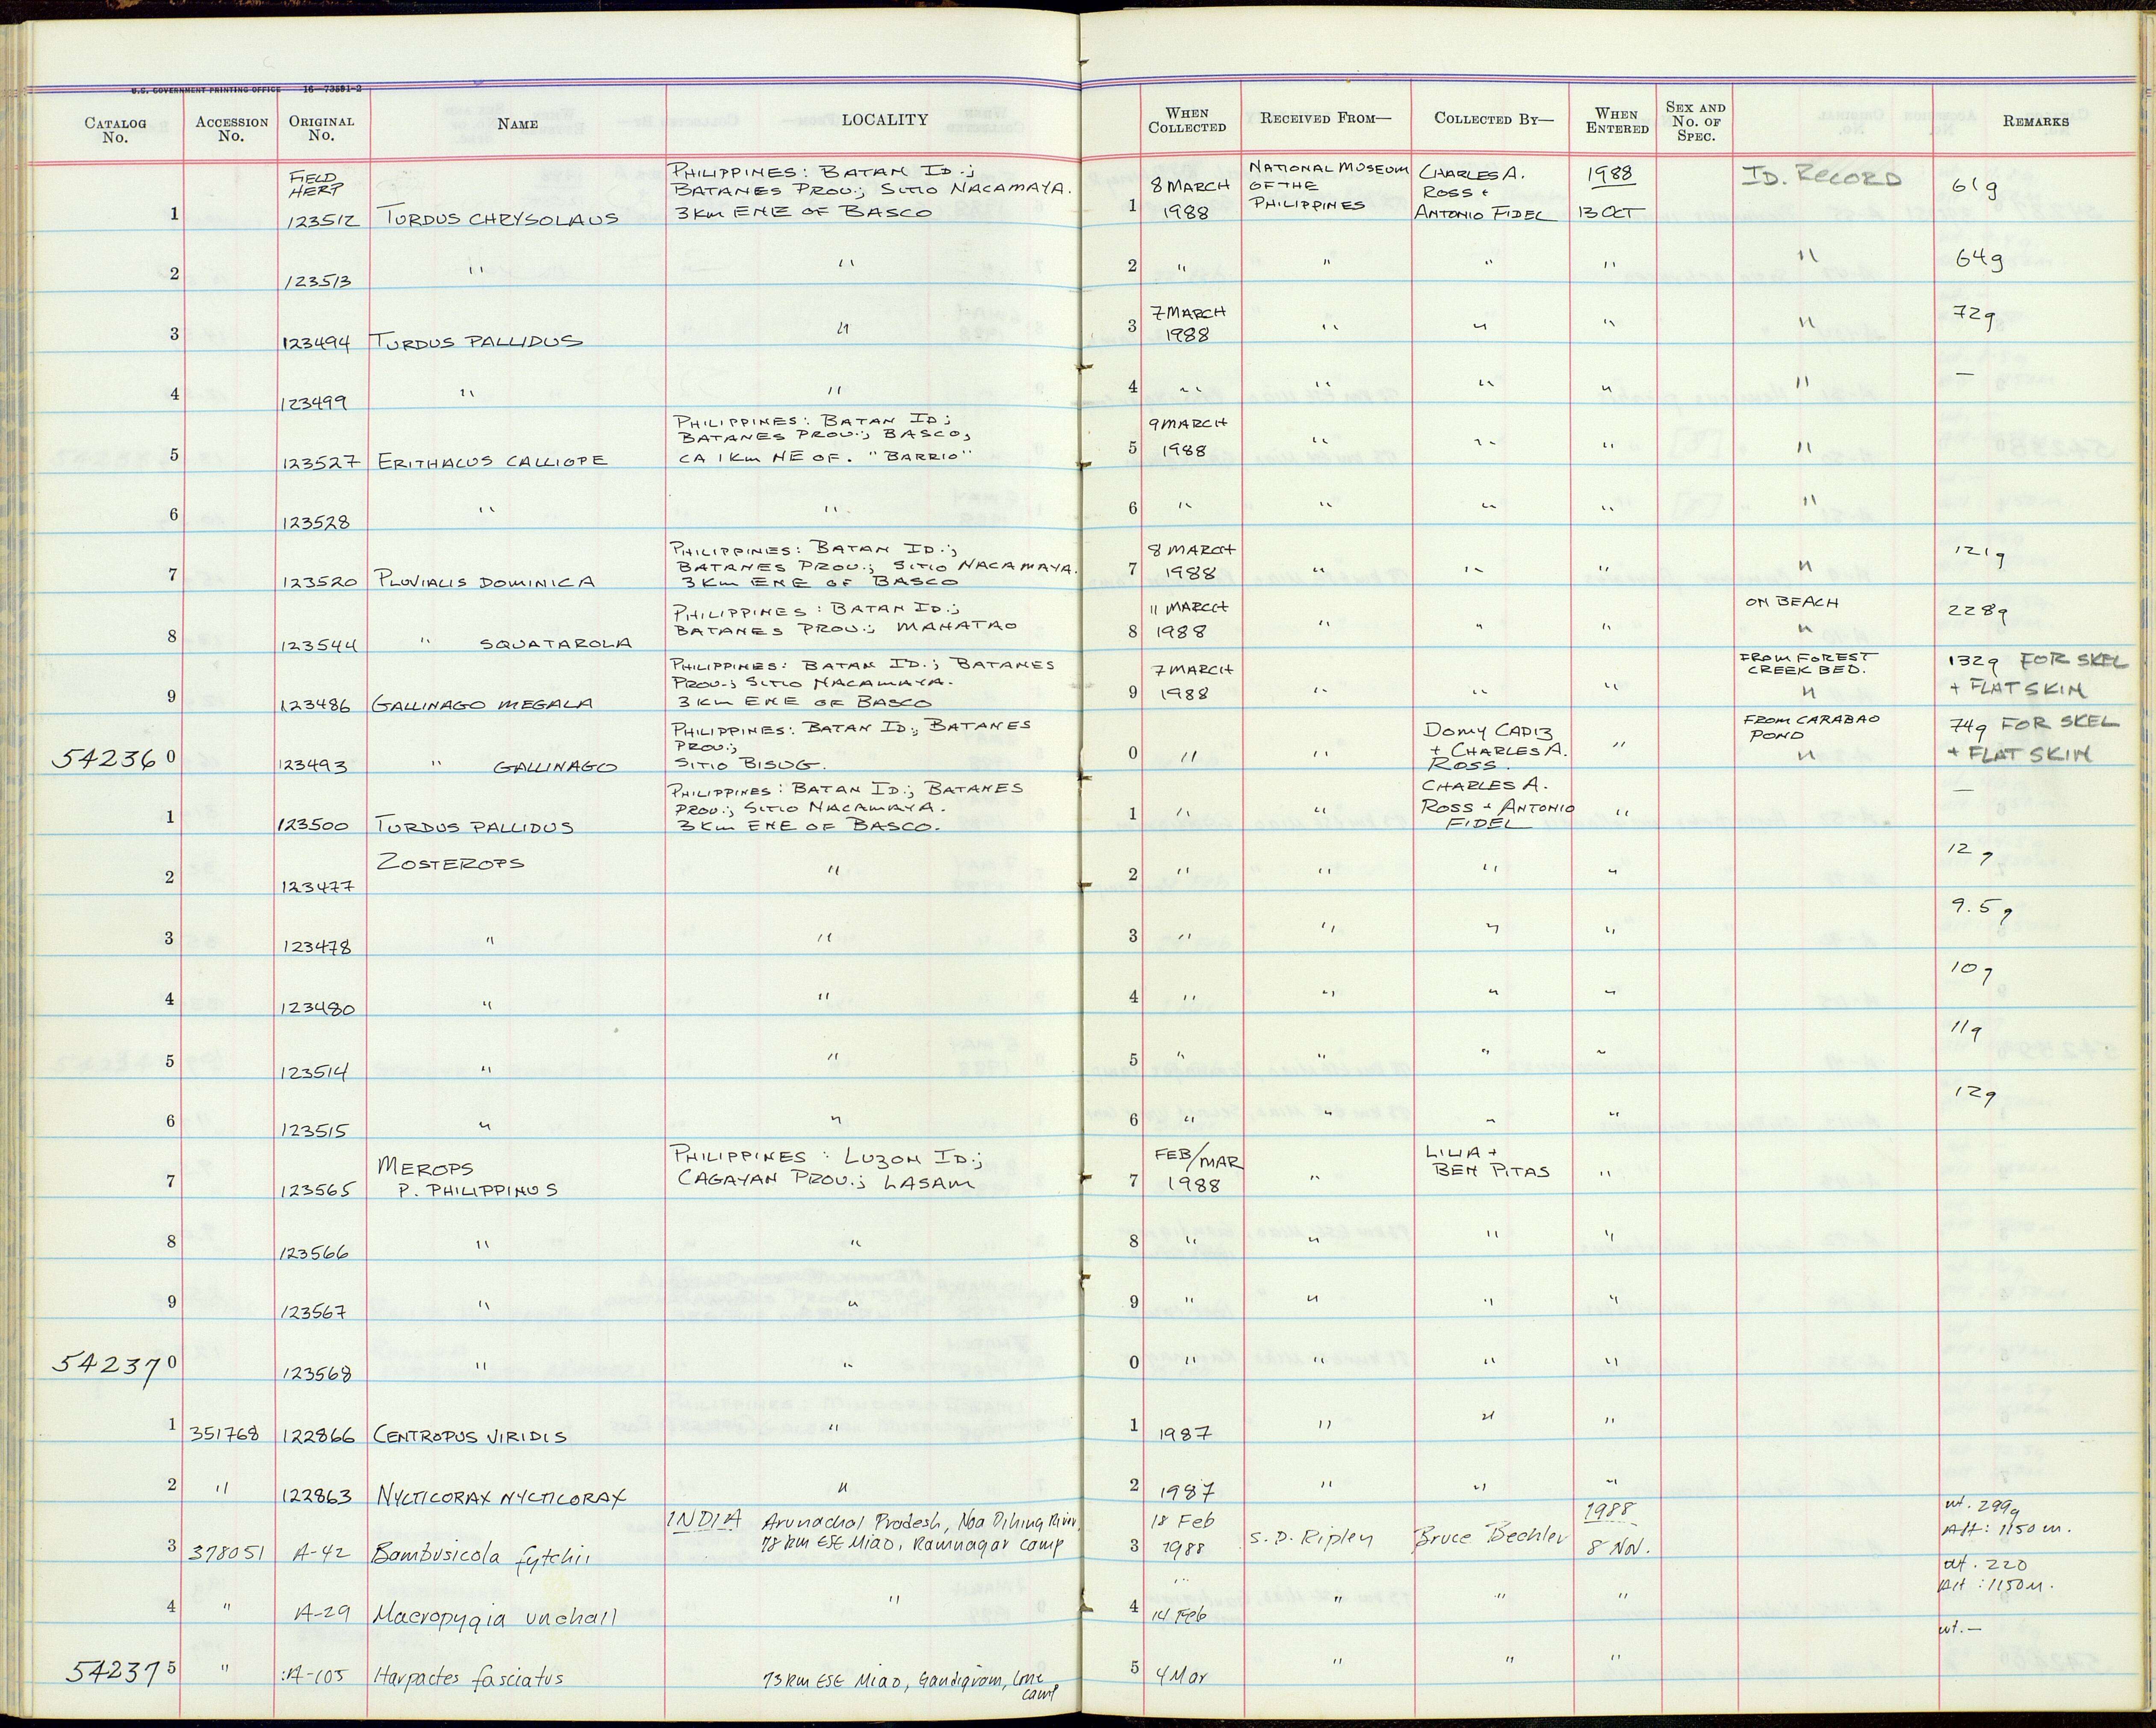 U.S. GOVERNMENT PRINTING OFFICE 16—73591-2
CATALOG No. ACCESSION No. ORIGINAL No. NAME LOCALITY WHEN COLLECTED RECEIVED FROM— COLLECTED BY— WHEN ENTERED SEX AND No. OF SPEC. REMARKS
1 FIELD HERP 123512 TURDUS CHRYSOLAUS PHILIPPINES: BATAN ID.; BATANES PROV.; SITIO NACAMAYA. 3 Km ENE OF BASCO 1 8 MARCH 1988 NATIONAL MUSEUM OF THE PHILIPPINES CHARLES A. ROSS + ANTONIO FIDEL 1988 13 OCT ID. RECORD 61g
2 123513 " " 2 " " " " " 64g
3 123494 TURDUS PALLIDUS " 3 7 MARCH 1988 " " " " 72g
4 123499 " " 4 " " " " " —
5 123527 ERITHACUS CALLIOPE PHILIPPINES: BATAN ID; BATANES PROV.; BASCO, CA 1 Km NE OF. "BARRIO" 5 9 MARCH 1988 " " " "
6 123528 " " 6 " " " " "
7 123520 PLUVIALIS DOMINICA PHILIPPINES: BATAN ID.; BATANES PROV.; SITIO NACAMAYA. 3 Km ENE OF BASCO 7 8 MARCH 1988 " " " " 121g
8 123544 " SQUATAROLA PHILIPPINES: BATAN ID.; BATANES PROV.; MAHATAO 8 11 MARCH 1988 " " " ON BEACH " 228g
9 123486 GALLINAGO MEGALA PHILIPPINES: BATAN ID.; BATANES PROV.; SITIO NACAMAYA. 3 Km ENE OF BASCO 9 7 MARCH 1988 " " " FROM FOREST CREEK BED. " 132g FOR SKEL + FLAT SKIN
542360 123493 " GALLINAGO PHILIPPINES: BATAN ID.; BATANES PROV.; SITIO BISUG. 0 " " DOMY CADIZ + CHARLES A. ROSS " FROM CARABAO POND " 74g FOR SKEL + FLAT SKIN
1 123500 TURDUS PALLIDUS PHILIPPINES: BATAN ID.; BATANES PROV.; SITIO NACAMAYA. 3 Km ENE OF BASCO. 1 " " CHARLES A. ROSS + ANTONIO FIDEL " —
2 123477 ZOSTEROPS " 2 " " " " 12g
3 123478 " " 3 " " " " 9.5g
4 123480 " " 4 " " " " 10g
5 123514 " " 5 " " " " 11g
6 123515 " " 6 " " " " 12g
7 123565 MEROPS P. PHILIPPINUS PHILIPPINES: LUZON ID.; CAGAYAN PROV.; LASAM 7 FEB/MAR 1988 " LILIA + BEN PITAS "
8 123566 " " 8 " " " "
9 123567 " " 9 " " " "
542370 123568 " " 0 " " " "
1 351768 122866 CENTROPUS VIRIDIS " 1 1987 " " "
2 " 122863 NYCTICORAX NYCTICORAX " 2 1987 " " "
3 378051 A-42 Bambusicola fytchii INDIA Arunachal Pradesh, Noa Dihing River, 78 km ESE Miao, Ramnagar camp 3 18 Feb 1988 S. D. Ripley Bruce Beehler 1988 8 Nov. wt. 299g Alt: 1150 m.
4 " A-29 Macropygia unchall " 4 " 14 Feb " " " wt. 220 Alt: 1150 m.
542375 " A-105 Harpactes fasciatus 73 km ESE Miao, Gandigram, Lone camp 5 4 Mar " " " wt. —